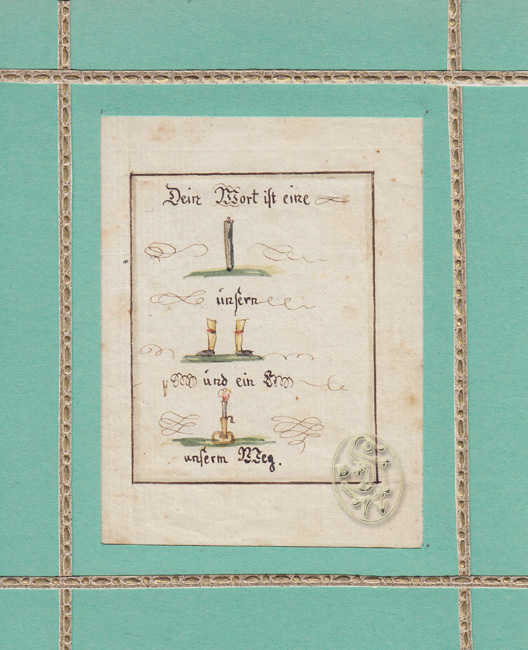 Dein Wort ist eine
unsern
und ein
unserm Weg.